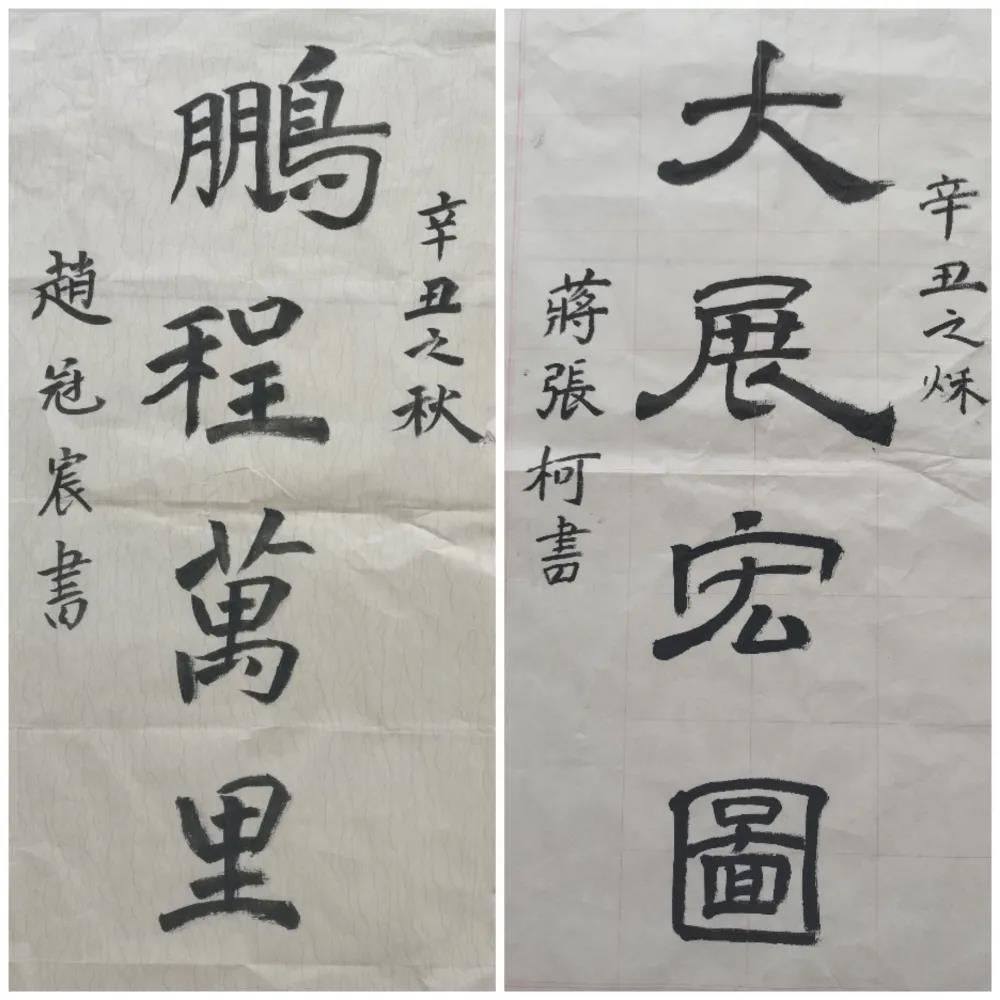 辛丑之秋
鵬程萬里
趙冠宸書
辛丑之秌
大展宏圖
蔣張柯書